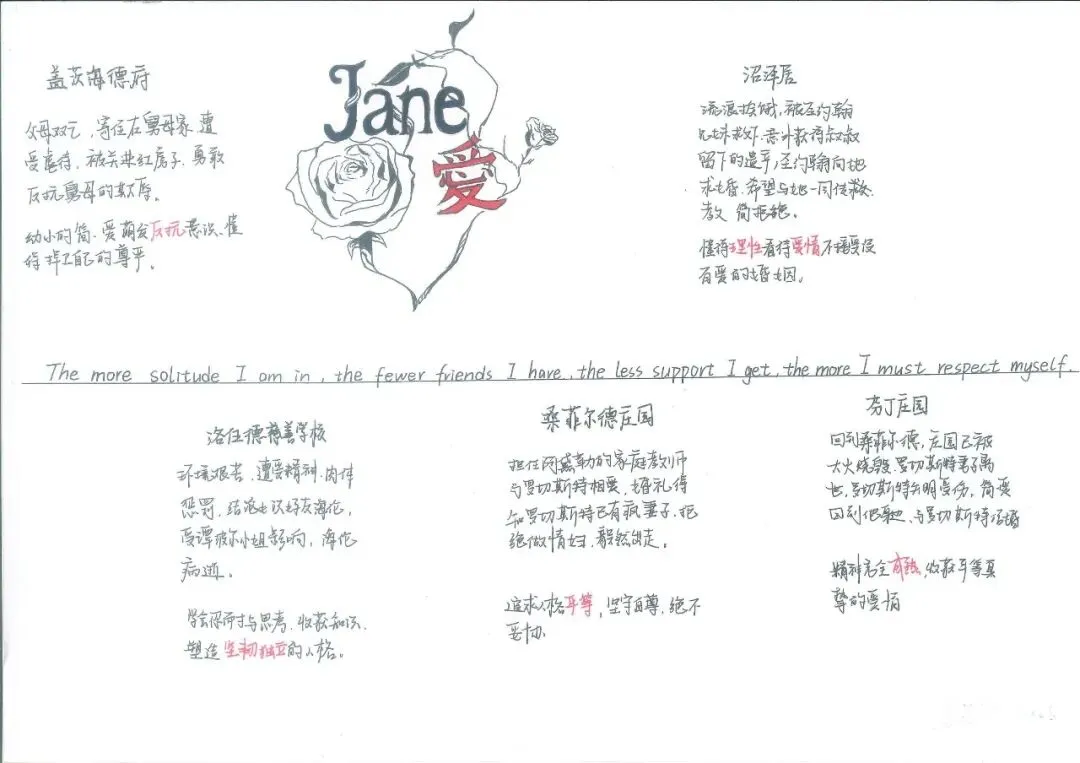 盖茨海德府
父母双亡、寄住在舅母家、遭
受虐待、被关进红房子、勇敢
反抗舅母的欺辱。
幼小的简·爱萌发反抗意识、懂
得捍卫自己的尊严。
Jane
爱
沼泽居
流浪挨饿，被圣约翰
兄妹救下、意外获得叔叔
留下的遗产，圣约翰向她
求婚、希望与她一同传教、
简拒绝。
懂得理性看待爱情不接受没
有爱的婚姻。
The more solitude I am in, the fewer friends I have, the less support I get, the more I must respect myself.
洛伍德慈善学校
环境艰苦，遭受精神、肉体
惩罚、结识好友海伦，
受谭波尔小姐影响，海伦
病逝。
学会保持与思考、收获知识、
塑造坚韧独立的人格。
桑菲尔德庄园
担任阿黛勒的家庭教师
与罗切斯特相爱、婚礼得
知罗切斯特已有疯妻子、拒
绝做情妇、毅然出走。
追求人格平等，坚守自尊，绝不
妥协
芬丁庄园
回到桑菲尔德，庄园已被
大火烧毁、罗切斯特妻子离
世，罗切斯特失明受伤，简爱
回到他身边、与罗切斯特结婚
精神完全成熟，收获平等真
挚的爱情